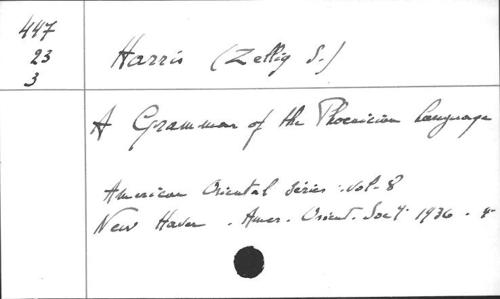 447
23
3
Harris (Zellig S.)
A Grammar of the Phoenician language
American Oriental Series. vol. 8
New Haven. Amer. Orient. Socy. 1936.